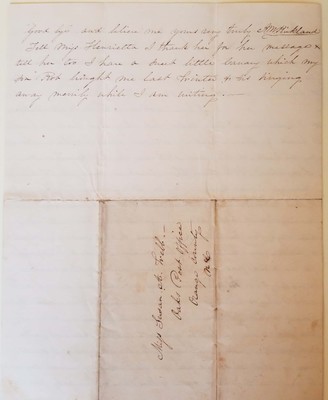 Good bye and believe me yours very truly
Tell Miss Henrietta I thank her for her message &
tell her too I have a sweet little canary which my
brought me last Winter & is singing
away merrily while I am writing.—
Miss Susan A. Webb—
Oaks Post Office
Orange County
N.C